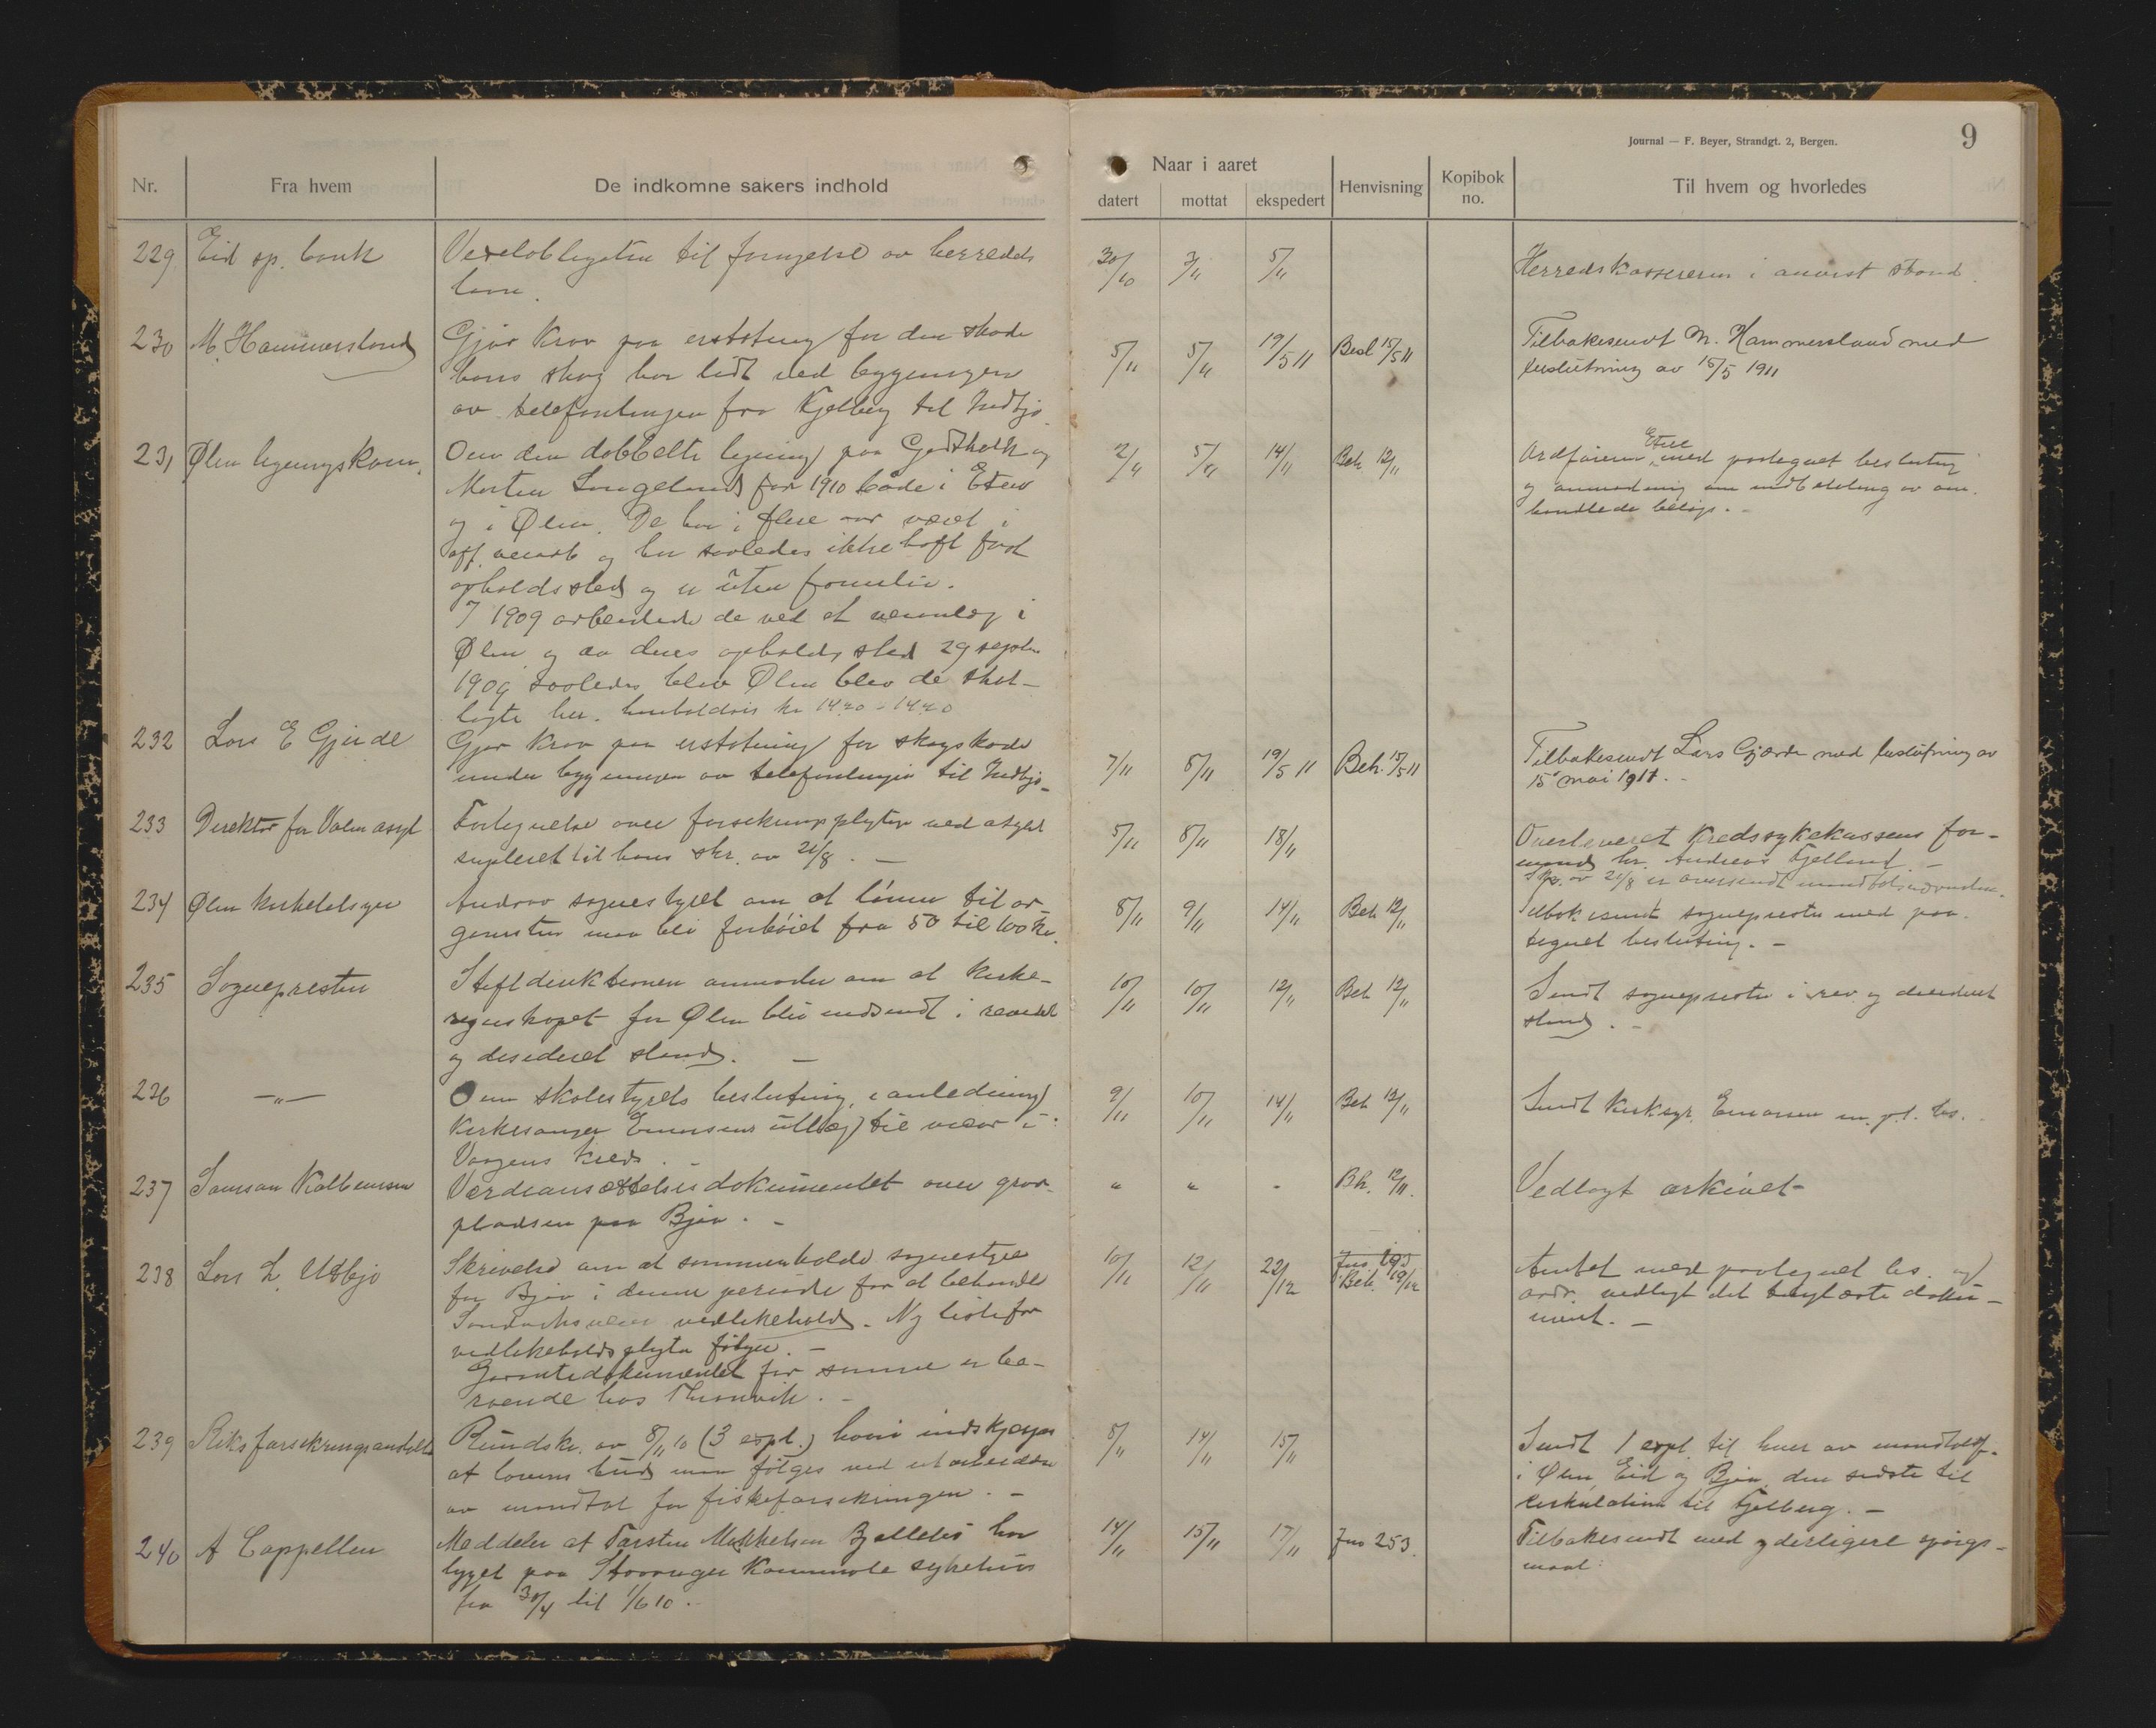 Journal — F. Beyer, Strandgt. 2, Bergen.
9
Nr.
Fra hvem
De indkomne sakers indhold
Naar i aaret
datert
mottat
ekspedert
Henvisning
Kopibok no.
Til hvem og hvorledes
229 Eid sp. bank
til fornyelse av herreds
laan.
30/10 3/11 5/11
Herredskassereren i anvist stand.
230 M. Hammersland
Gjør krav paa erstatning for den skade
hans skog har lidt ved bygningen
av telefonlinjen fra Fjelberg til Indbjo.
5/11 5/11 19/5 11 Besl 15/5 11
Tilbakesendt M. Hammersland med
beslutning av 15/5 1911
231 Ølen ligningskom.
Om den dobbelte ligning paa og
Morten Langeland for 1910 både i Etne
og i Ølen. De har i flere aar været i
off. veiarb og har saaledes ikke haft fast
opholdssted og er uten familie.
I 1909 arbeidede de ved et veianlæg i
Ølen og da deres opholdssted 29 septbr
1909 saaledes blev Ølen blev de skat-
lagte her. henholdsvis kr 14.20 - 14.20
2/11 5/11 14/11 Beh 12/11
Ordføreren Etne med paategnet beslutning
og anmodning om indbetaling av om-
handlede beløp. -
232 Lars E Gjerde
Gjør krav paa erstatning for skogskade
under bygningen av telefonlinjen til Indbjo.
7/11 8/11 19/5 11 Beh. 15/5 11
Tilbakesendt Lars Gjærde med beslutning av
15 mai 1911. -
233 Direktør for Valen asyl
Fortegnelse over forsikringspligtige ved asylet
supleret til hans skr. av 21/8. -
5/11 8/11 18/11
Overleveret Kredssykekassens for-
mand hr. Andreas Fjelland -
Skr. av 21/8 er oversendt
234 Ølen kirketilsyn
Andrar sognestyret om at lønnen til or-
ganisten maa bli forhøiet fra 50 til 100 kr.
8/11 9/11 14/11 Beh 12/11
Tilbakesendt sognepresten med paa-
tegnet beslutning. -
235 Sognepresten
Stiftdirektionen anmoder om at kirke-
regnskapet for Ølen blir indsendt i revidert
og desideret stand. -
10/11 10/11 12/11 Beh 12/11
Sendt sognepresten i rev. og desideret
stand. -
236 -"-
Om skolestyrets beslutning i anledning
Kirkesanger Einarsens utlæg til vikar i
Vaagens kreds. -
9/11 10/11 14/11 Beh 12/11
Sendt Kirksgr. Einarsen m. p. t. bs.
237 Samson Kolbeinsen
Værdiansættelsesdokumentet over grav-
pladsen paa Bjoa. -
" " - Bh. 12/11.
Vedlagt arkivet
238 Lars L. Utbjo
Skrivelse om at sammenholde sognestyre
for Bjoa i denne periode for at behandle
vedlikehold. Ny liste for
vedlikeholdspligten følger. -
Garantidokumentet for samme er bero-
ende hos Thorsvik. -
10/11 12/11 22/12 Beh. 19/12
Amtet med paategnet bs. og
ordr. vedlagt det doku-
ment. -
239 Riksforsikringsanstalten
Rundskr. av 8/11 10 (3 expl.) hvori indskjærpes
at lovens bud maa følges ved utarbeidelsen
av mandtal for fiskeforsikringen. -
8/11 14/11 15/11
Sendt 1 expl til hver av mandtalsf.
i Ølen Eid og Bjoa den sidste til
cirkulation til Fjelberg. -
240 A Cappellen
Meddeler at Torsten Mikkelsen har
ligget paa Stavanger Kommunale sykehus
fra 30/4 til 1/6 10. -
14/11 15/11 17/11 Jno 253.
Tilbakesendt med yderligere spørgs-
maal.